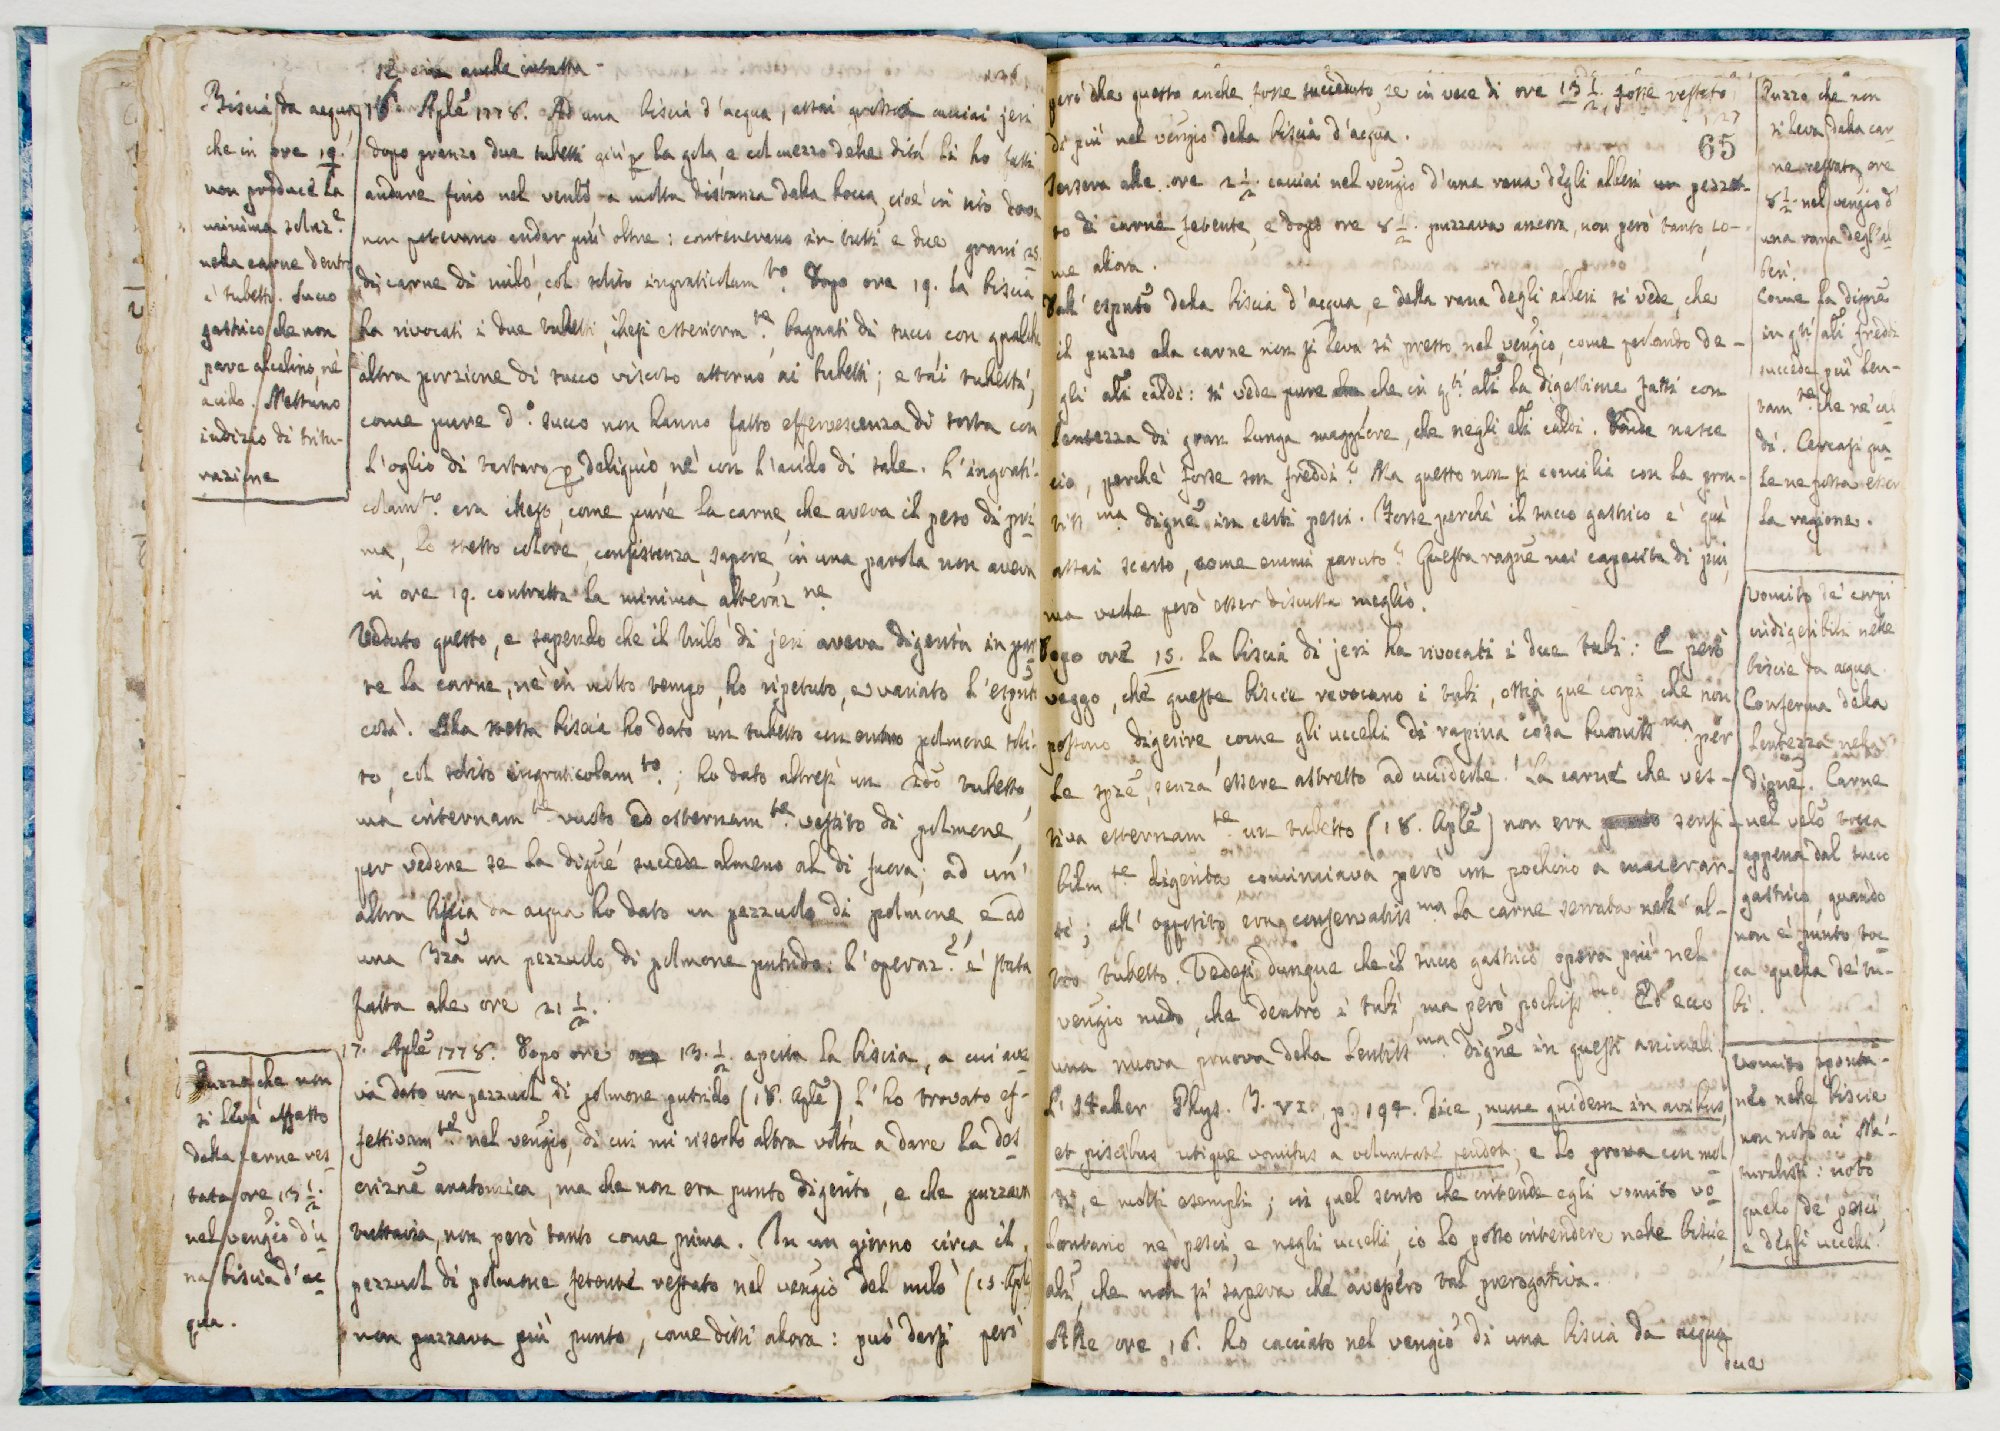 se era anche intatta -
126
Biscia da acqua
che in ore 19.
non produce la
minima soluz.e
nella carne dentro
i tubetti. Succo
gastrico che non
pare alcalino, nè
acido. Nessuno
indizio di tritu-
razione
16. Aple 1778. Ad una biscia d'acqua, assai grossa cacciai jeri
dopo pranzo due tubetti giù p la gola, e col mezzo delle dita li ho fatti
andare fino nel ventlo a molta distanza dalla bocca, cioè in sito dove
non potevano andar più oltre: contenevano in tutti e due grani 25
di carne di nilo, col solito ingraticolam.to Dopo ore 19. la biscia
ha rivocati i due tubetti, illesi esteriorm.te, bagnati di succo con qualche
altra porzione di succo viscoso attorno ai tubetti; e tai tubetti,
come pure d.o succo non hanno fatto effervescenza di sorta con
l'oglio di tartaro p deliquio, nè con l'acido di sale. L'ingrati-
colam.to era illeso, come pure la carne, che aveva il peso di pri-
ma, lo stesso colore, consistenza, sapore, in una parola non aveva
in ore 19. contratta la minima alteraz.ne
Veduto questo, e sapendo che il nilo di jeri aveva digerita in par-
te la carne, nè in molto tempo, ho ripetuto, e variato l'espto
così. Alla stessa biscia ho dato un tubetto con entro polmone soli-
to, col solito ingraticolam.to; ho dato altresì un 2do tubetto,
ma internam.te vuoto ed esternam.te vestito di polmone,
per vedere se la digne succede almeno al di fuora; ad un'
altra biscia da acqua ho dato un pezzuolo di polmone, e ad
una 3za un pezzuolo di polmone putrido: l'operaz.e è stata
fatta alle ore 21 1/2.
Puzzo che non
si leva affatto
dalla carne res-
tata ore 13 1/2.
nel vengio d'u-
na biscia d'ac-
qua.
17. Aple 1778. Dopo ore 13. 1/2. aperta la biscia, a cui ave
va dato un pezzuol di polmone putrido (16. Aple), l'ho trovato ef-
fettivam.te nel vengio, di cui mi riserbo altra volta a dare la des
crizne anatomica, ma che non era punto digerito, e che puzzava
tuttavia, non però tanto come prima. In un giorno circa il
pezzuol di polmone fetente restato nel vengio del nilo (15. Aple)
non puzzava più punto, come dissi allora: può darsi però
però che questo anche fosse succeduto, se in vece di ore 13 1/2. fosse restato
127
65
di più nel vengio della biscia d'acqua.
Jersera alle ore 2 1/2 cacciai nel vengio d'una rana degli alberi un pezzet-
to di carne fetente, e dopo ore 8 1/2. puzzava ancora, non però tanto, co-
me allora.
Dall'esputo della biscia d'acqua, e della rana degli alberi si vede, che
il puzzo alla carne non si leva sì presto nel vengio, come facendo de-
gli ali caldi: si vede pure che in qti ali la digestione fassi con
lentezza di gran lunga maggiore, che negli ali caldi. Donde nasce
cio, perchè forse son freddi? Ma questo non si concilia con la pron-
tiss.ma digne in certi pesci. Forse perchè il succo gastrico è quì
assai scarso, come emmi paruto? Questa ragne mi capacita di più,
ma vuole però esser discussa meglio.
Dopo ore 15. la biscia di jeri ha rivocati i due tubi: E però
veggo, che queste biscie revocano i tubi, ossia que' corpi che non
possono digerire, come gli uccelli di rapina cosa buoniss.ma per
le spze, senza essere astretto ad ucciderle. La carne che ves-
tiva esternam.te un tubetto (16. Aple) non era sensi-
bilm.te digerita cominciava però un pochino a macerar-
si; all'opposito era conservatiss.ma la carne serrata nell'al-
tro tubetto. Vedesi dunque che il succo gastrico opera più nel
vengio nudo, che dentro i tubi, ma però pochiss.mo Ed ecco
una nuova pruova della lentiss.ma digne in questi animali.
L'Haller Phys. T. VI. p. 194. dice, nunc quidem in avibus,
et piscibus utique vomitus a voluntate pendet; e lo prova con mol
ti, e molti esempli; in quel senso che intende egli vomito vo-
lontario ne' pesci, e negli uccelli, io lo posso intendere nelle biscie,
ali, che non si sapeva che avessero tal prerogativa.
Alle ore 16. ho cacciato nel vengio di una biscia da acqua
due
Puzzo che non
si leva dalla car-
ne restata ore
8 1/2 nel vengio d'
una rana degl'al
beri.
Come la digne
in qti ali freddi
succede più len-
tam.te che ne' cal
di. Cercasi qua-
le ne possa esser
la ragione.
Vomito de' corpi
indigeribili nelle
biscie da acqua.
Conferma della
lentezza nella
digne. Carne
nel velo tocca
appena dal succo
gastrico, quando
non è punto toc-
ca quella de' tu-
bi.
Vomito sponta-
neo nelle biscie
non noto ai Na-
turalisti: noto
quello de' pesci,
e degli uccelli.